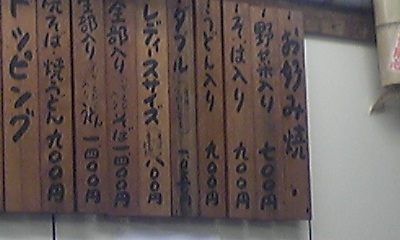 お好み焼
野菜入り 七〇〇円
そば入り 九〇〇円
うどん入り 九〇〇円
ダブル
レディスサイズ 八〇〇円
全部入り そば 一四〇〇円
全部入り 一四〇〇円
焼そば 焼うどん 九〇〇円
トッピング